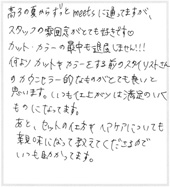 高3の夏からずっとmeetsに通ってますが、
スタッフの雰囲気がとても好きです♡
カット・カラーの最中も退屈しません!!!
何よりカットやカラーをする前のスタイリストさん
のカウンセラー的なものがとても良いと
思います。いつもイエガンは満足のいく
ものになってます。
あと、セットの仕方やヘアケアについても
親味になって教えてくださるので
いつも助かってます。